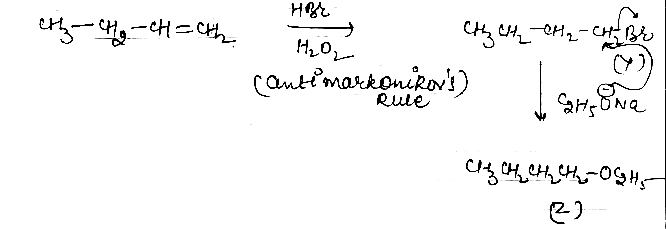 CH3-CH2-CH=CH2 HBr CH3CH2-CH2-CH2Br
H2O2 (Y)
(anti markonikov's Rule)
C2H5ONa
CH3CH2CH2CH2-OC2H5
(Z)